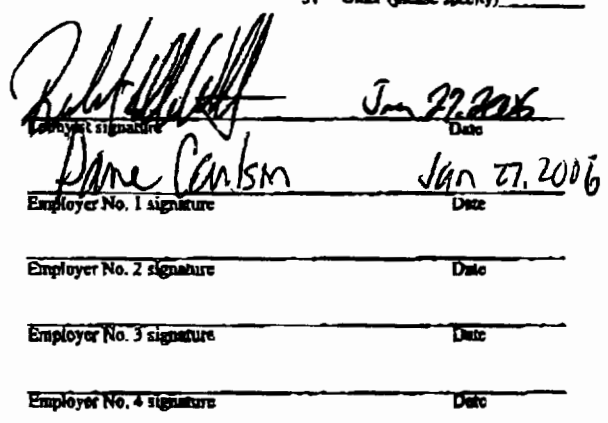 Other (please specify)
Jan 27, 2006
Lobbyist signature Date
Dane Carlson Jan 27, 2006
Employer No. 1 signature Date
Employer No. 2 signature Date
Employer No. 3 signature Date
Employer No. 4 signature Date